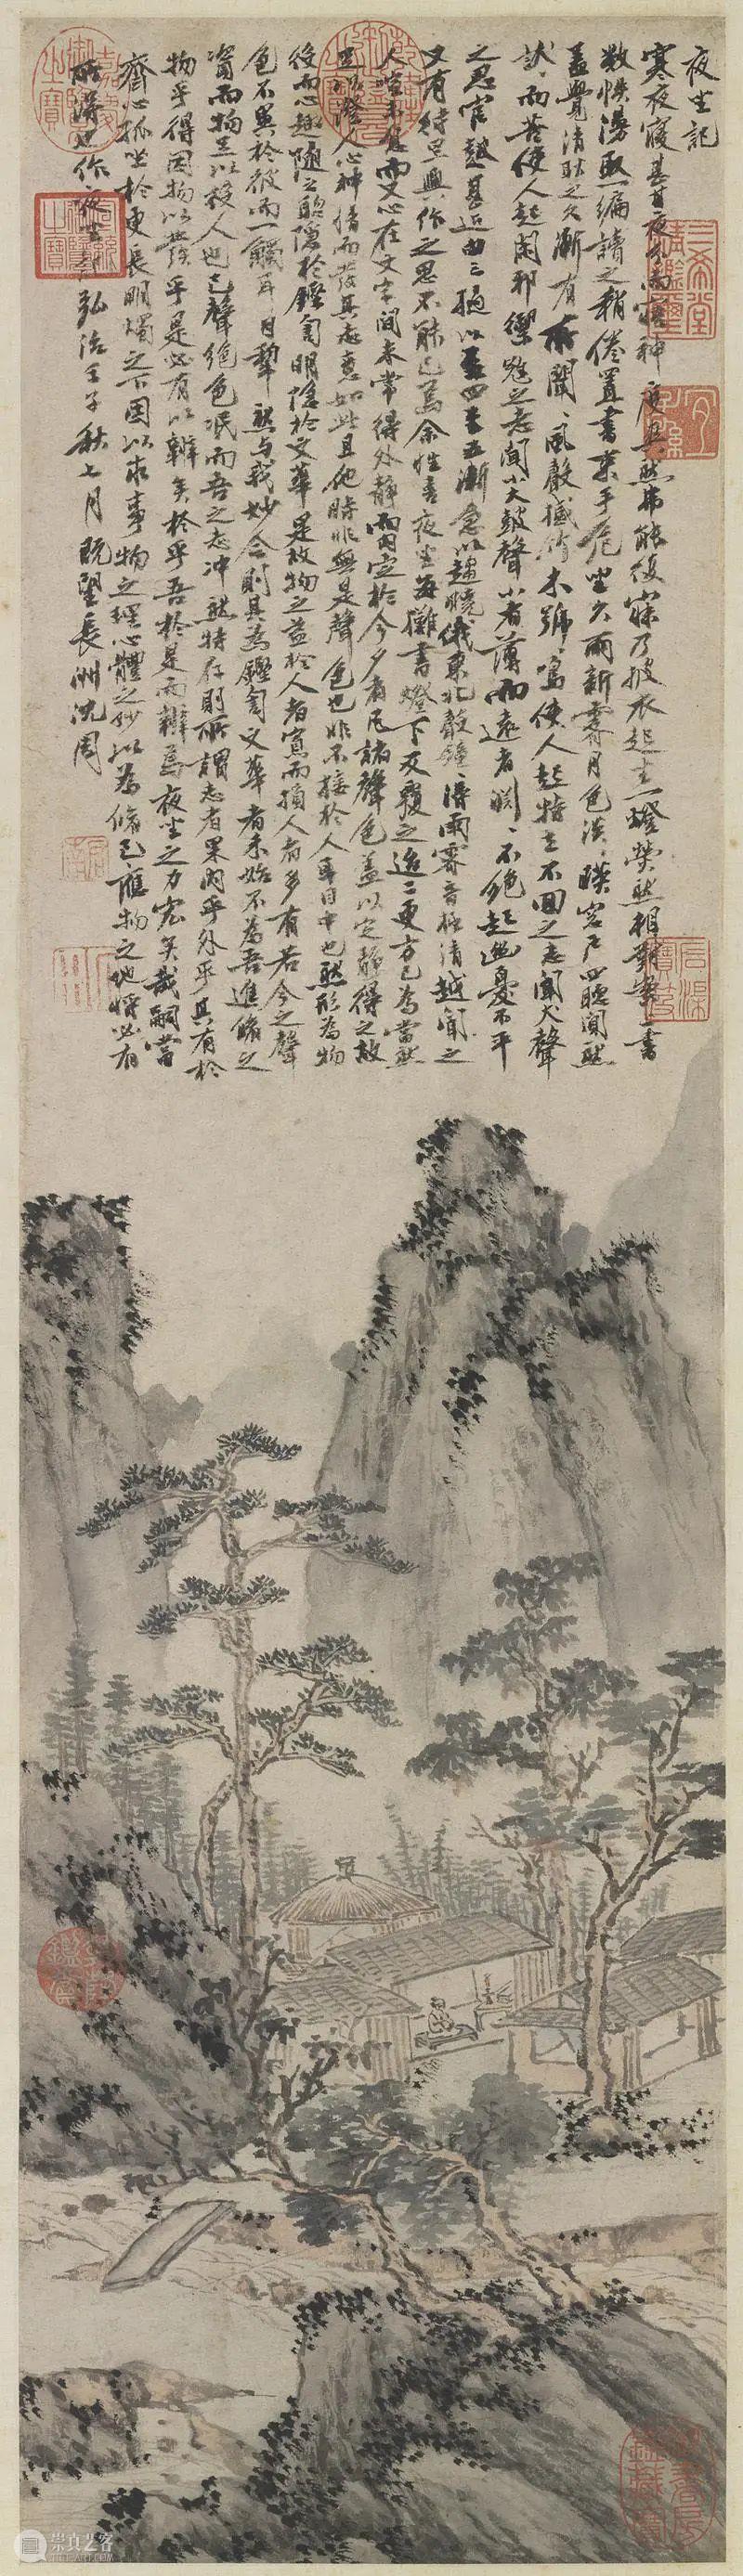 夜坐記
寒夜寢甚甘夜分而寤神度爽然弗能復寐乃披衣起坐一燈熒然相對案上書
數帙漫取一編讀之稍倦置書束手危坐久雨新霽月色淡淡映窗戶四聽闃然
蓋覺清耿之久漸有所聞聞風聲撼竹木號號鳴使人起特立不回之志聞犬聲
狺狺而苦使人起閑邪禦寇之志聞小大鼓聲小者薄而遠者淵淵不絕起幽憂不平
之思官鼓甚近由三撾以至四至五漸急以趨曉俄東北聲鐘鐘得雨霽音極清越聞之
又有待旦興作之思不能已焉余性喜夜坐每攤書燈下反覆之迨二更方已為當然
人喧未息而又心在文字間未常得外靜而內定於今夕者凡諸聲色蓋以定靜得之故
足以澄人心神情而發其志意如此且他時非無是聲色也非不接於人耳目中也然形為物
役而心趣隨之聰隱於鏗訇明隱於文華是故物之益於人者寡而損人者多有若今之聲
色不異於彼而一觸耳目犁然與我妙合則其為鏗訇文華者未始不為吾進修之
資而物足以役人也已聲絕色泯而吾之志沖然特存則所謂志者果內乎外乎其有於
物乎得因物以發乎是必有以辨矣於乎吾於是而辨焉夜坐之力宏矣哉嗣當
齋心孤坐於更長明燭之下因以求事物之理心體之妙以為修己應物之地將必有
所得也作夜坐記弘治壬子秋七月既望長洲沈周
嘉慶御覽之寶
乾隆御覽之寶
宣統御覽之寶
三希堂精鑑璽
宜子孫
石渠寶笈
啟南
乾隆鑑賞
御書房鑑藏寶
崇真之客